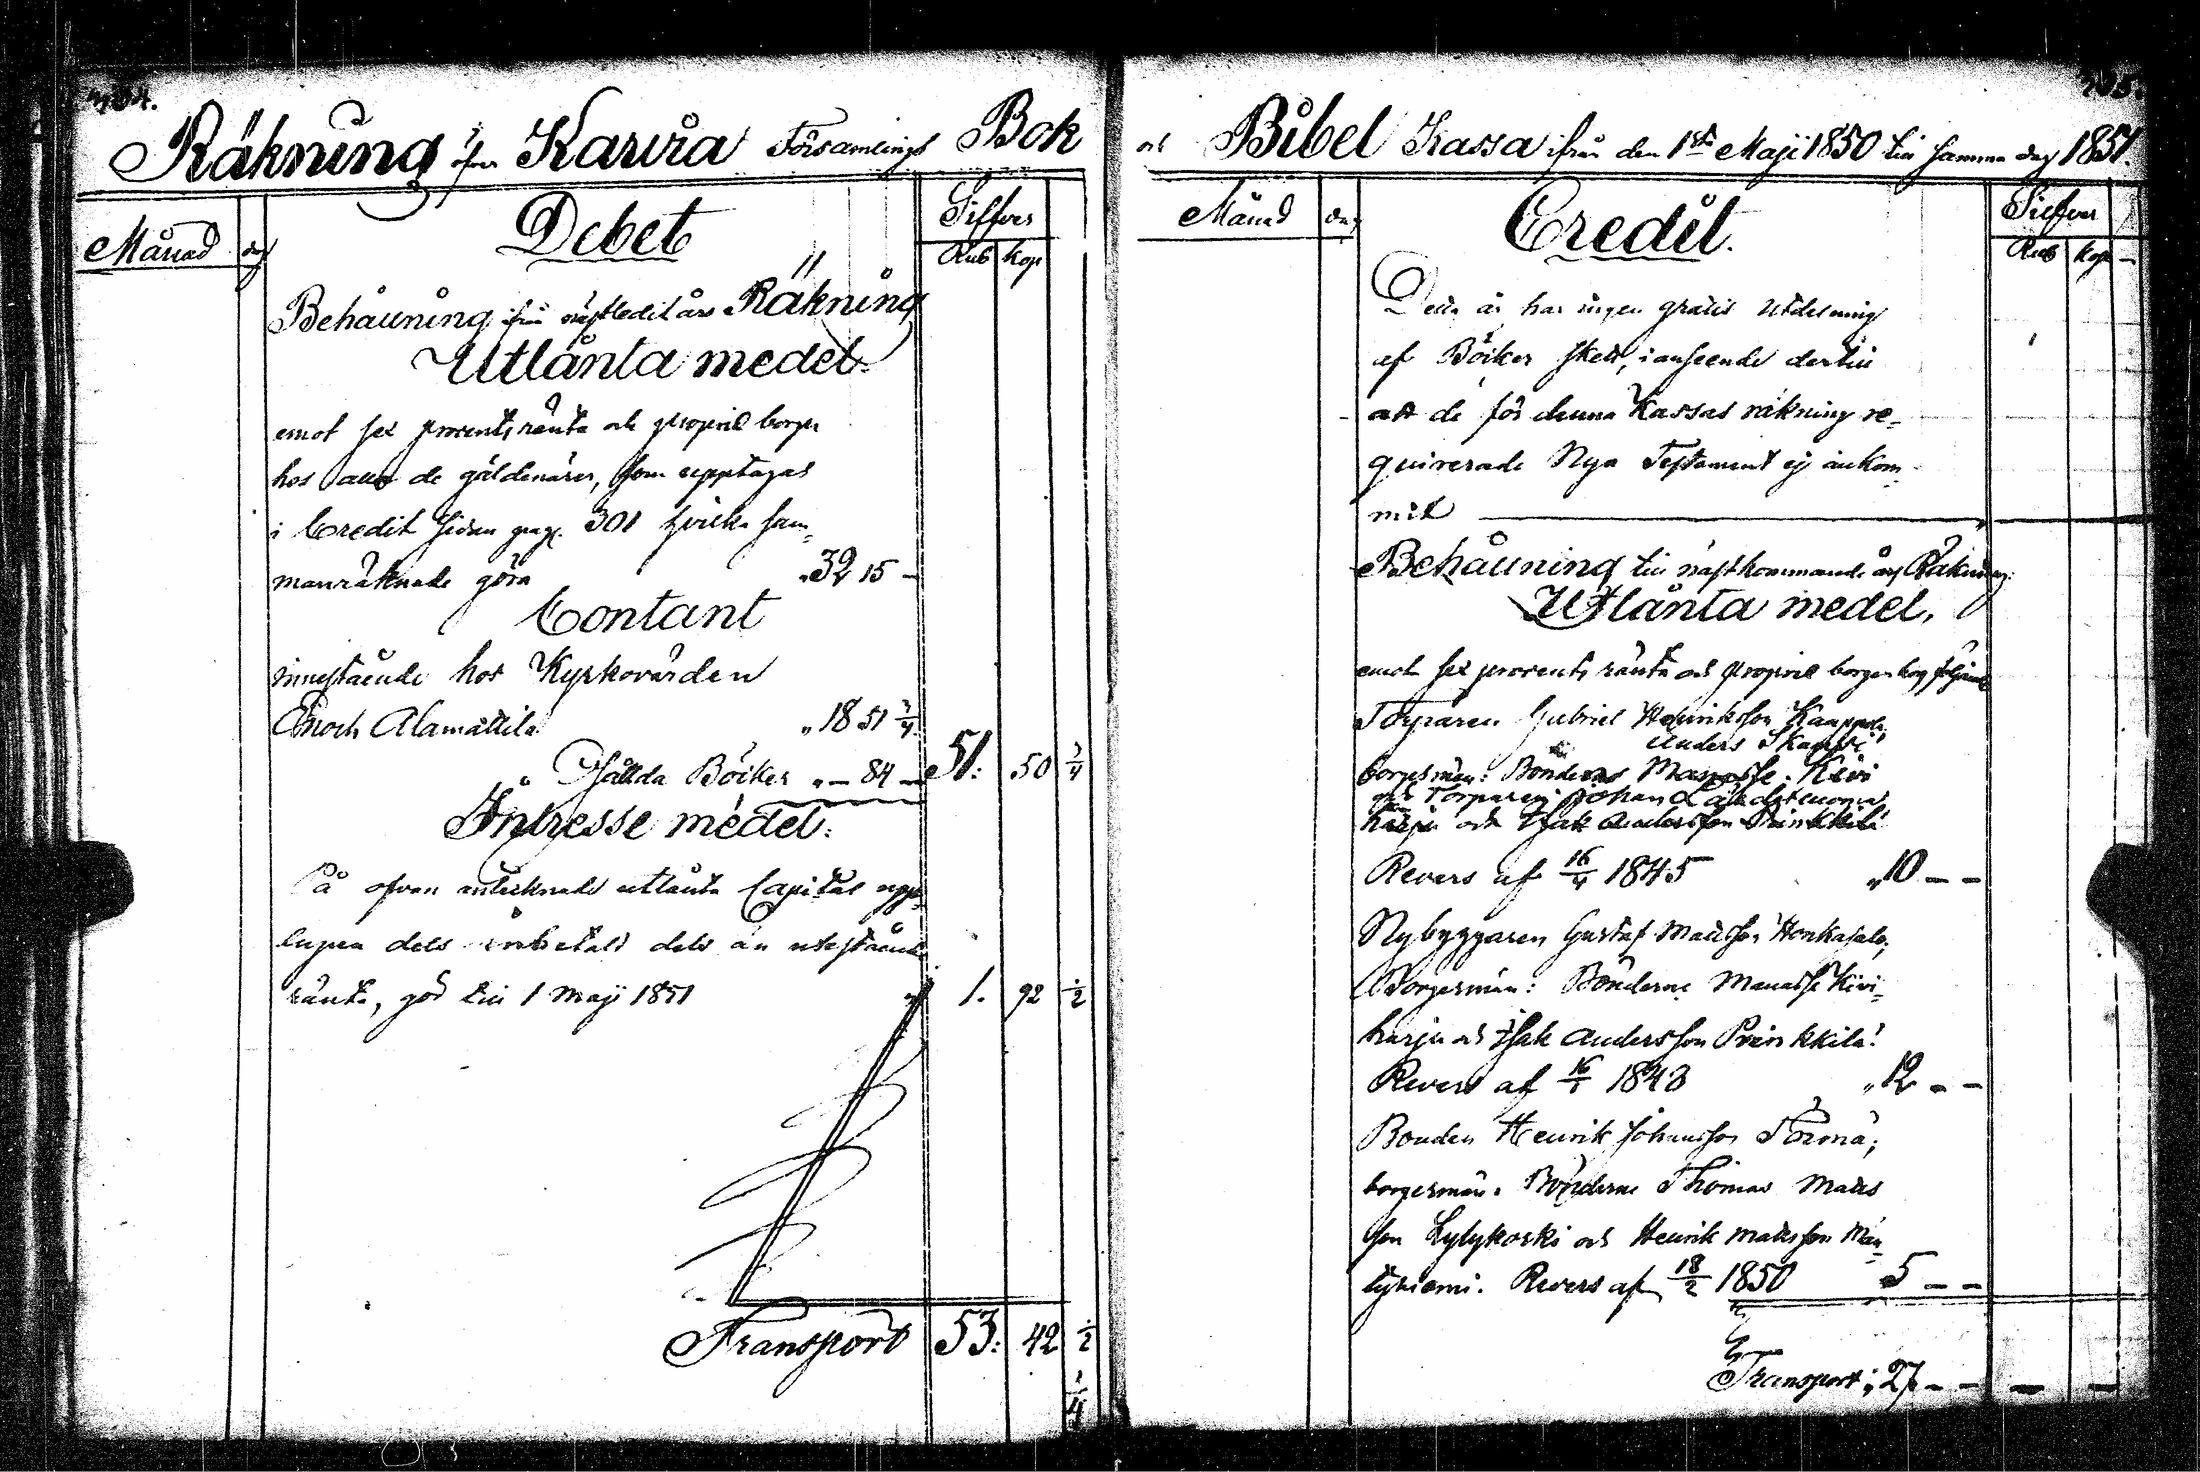 304.
Räkning öfver Karvia Församlings Bok
Månad dag
Debet
Silfver
Rub kop
Behållning ifrån nästledit års Räkning
Utlånta medel.
emot sex procents ränta och proprieborgen
hos alla de gäldenärer, som upptagas
i Credit sidan pag. 301 hvilka sam-
manräknade göra „32 15 –
Contant
innestående hos Kyrkovärden
Enoch Alamattila „18 51 3/4
Sållda Böcker „ – 84 – 51: 50 3/4
Intresse medel:
På ofvan antecknade utlånta Capital upp-
lupen dels inbetald dels än utestående
ränta, gör till 1 Maji 1851 1. 92 1/2
Transport 53: 42 1/2
1/4
305.
och Bibel Kassa ifrån den 1sta Maji 1850 till samma dag 1851.
Månad dag
Credit.
Silfver
Rub kop
Detta år har ingen gratis utdelning
af Böcker skett, i anseende dertill
att de för denna Kassas räkning re-
quirerade Nya Testament ej ankom-
mit
Behållning till nästkommande års Räkning:
Utlånta medel,
emot sex procents ränta och proprieborgen hos följande
Torparen Gabriel Henriksson
Anders
borgesmän: Bönderne Manasse Kivi
och Torparen Johan
harju och Isak Andersson Prinkkilä
Revers af 16/4 1845 „10 – –
Nybyggaren Gustaf Mattsson Honkasalo,
Borgesmän: Bönderne Manasse Kivi-
harju och Isak Andersson Prinkkilä!
Revers af 16/1 1843 „12 – –
Bonden Henrik Johansson Törmä;
borgesmän: Bönderne Thomas Matts
son Lylykoski och Henrik Mattsson Män-
tyniemi. Revers af 18/2 1850 5 – –
Transport „27 – – – –